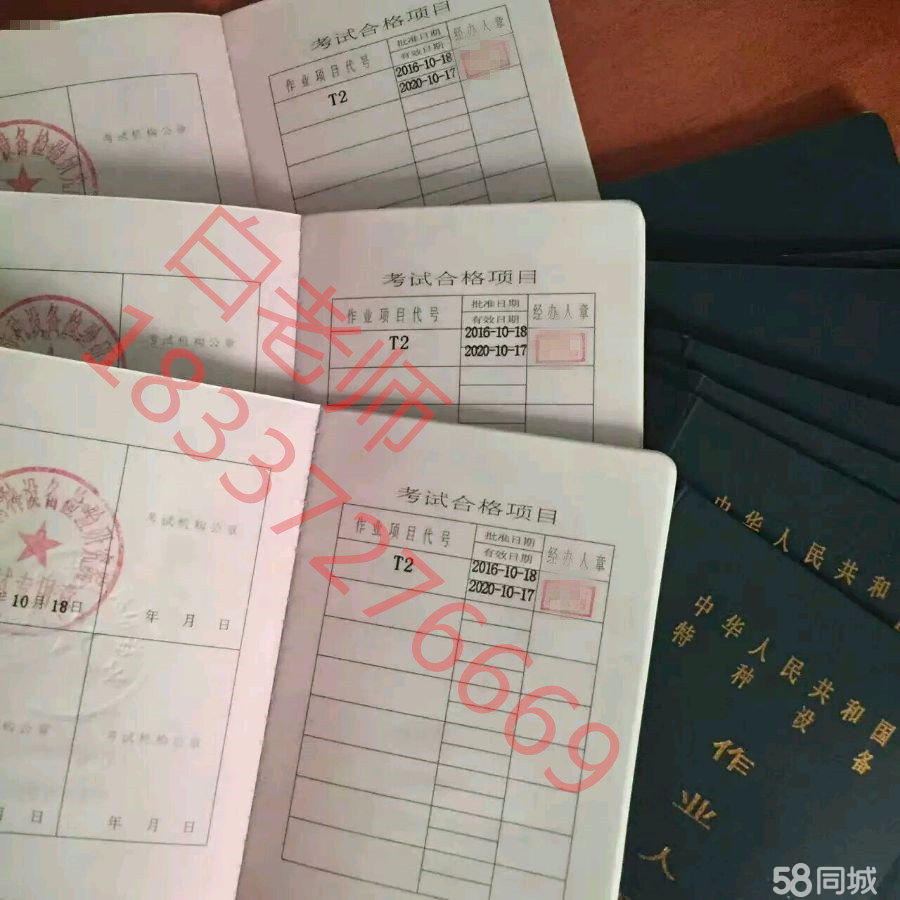 考试合格项目
作业项目代号
批准日期
有效日期
经办人章
T2
2016-10-18
2020-10-17
考试机构公章
考试合格项目
作业项目代号
批准日期
有效日期
经办人章
T2
2016-10-18
2020-10-17
考试机构公章
考试合格项目
作业项目代号
批准日期
有效日期
经办人章
T2
2016-10-18
2020-10-17
考试机构公章
10月18日
年 月 日
机构公章
考试机构公章
月 日
年 月 日
白老师
18337276669
中华人民共和
中华人民共和国
特种设备
作业人
58同城